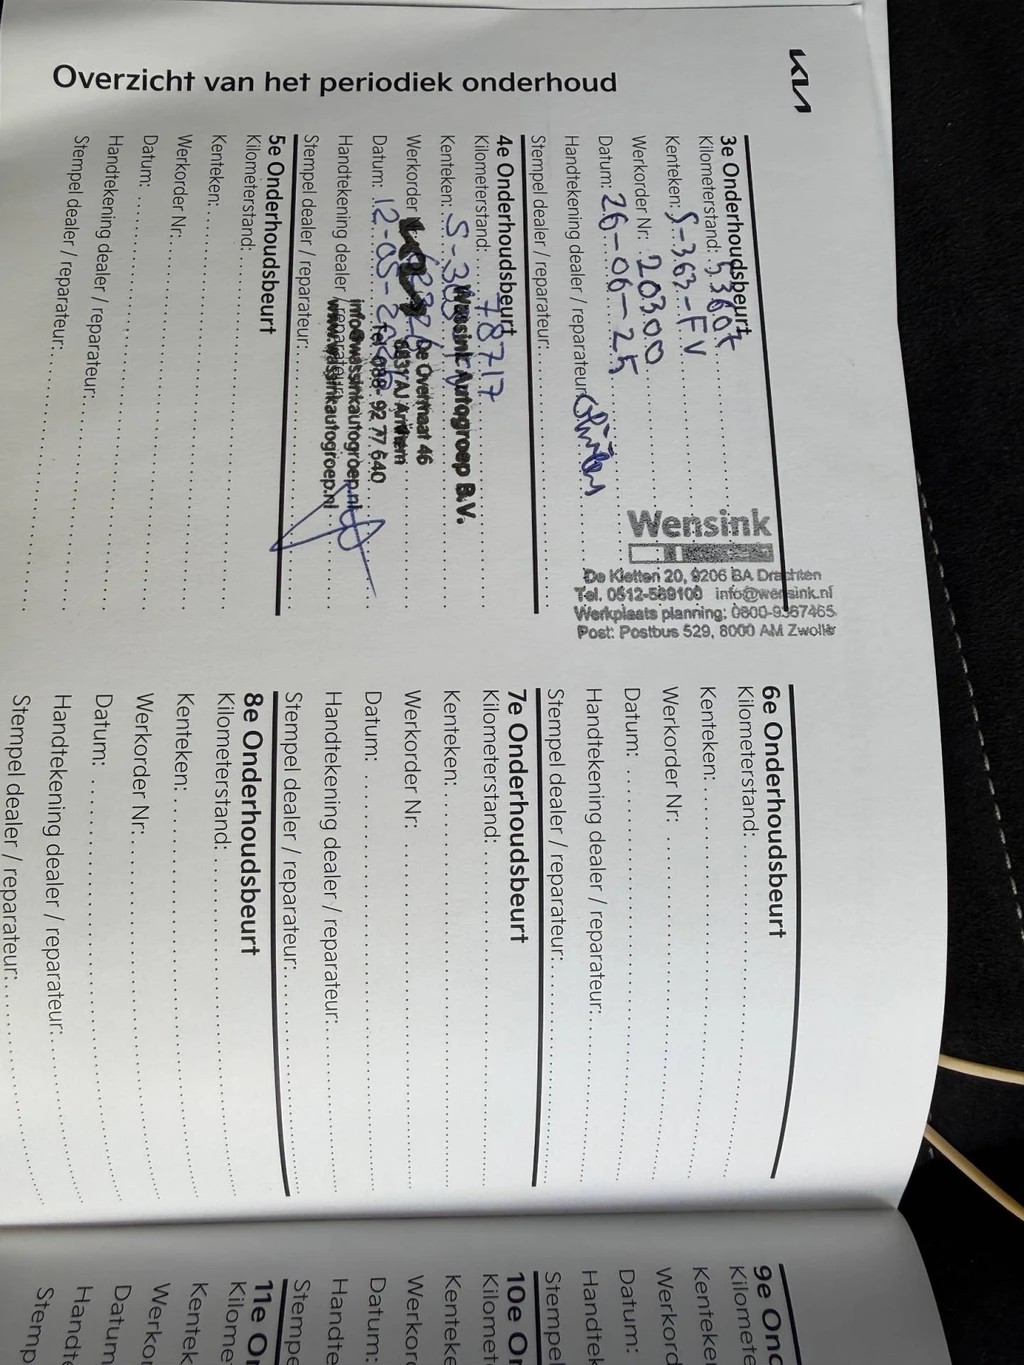 KIA
Overzicht van het periodiek onderhoud
3e Onderhoudsbeurt
Kilometerstand: 53607
Kenteken: S-363-FV
Werkorder Nr: 20300
Datum: 26-06-25
Handtekening dealer / reparateur:
Stempel dealer / reparateur:
Wensink
De Kletten 20, 9206 BA Drachten
Tel. 0512-569100 info@wensink.nl
Werkplaats planning: 0800-9367465
Post: Postbus 529, 8000 AM Zwolle
4e Onderhoudsbeurt
Kilometerstand: 78717
Kenteken: S-363-FV
Werkorder
Datum: 12-05-
Handtekening dealer / reparateur:
Stempel dealer / reparateur:
Wensink Autogroep B.V.
De Overmaat 46
6831 AJ Arnhem
Tel. 088- 92 77 640
info@wensinkautogroep.nl
www.wensinkautogroep.nl
5e Onderhoudsbeurt
Kilometerstand:
Kenteken:
Werkorder Nr:
Datum:
Handtekening dealer / reparateur:
Stempel dealer / reparateur:
6e Onderhoudsbeurt
Kilometerstand:
Kenteken:
Werkorder Nr:
Datum:
Handtekening dealer / reparateur:
Stempel dealer / reparateur:
7e Onderhoudsbeurt
Kilometerstand:
Kenteken:
Werkorder Nr:
Datum:
Handtekening dealer / reparateur:
Stempel dealer / reparateur:
8e Onderhoudsbeurt
Kilometerstand:
Kenteken:
Werkorder Nr:
Datum:
Handtekening dealer / reparateur:
Stempel dealer / reparateur:
9e Ond
Kilomete
Kenteke
Werkord
Datum:
Handtek
Stempel
10e Or
Kilomet
Kenteke
Werkord
Datum:
Handte
Stempe
11e Or
Kilome
Kentek
Werko
Datum
Handt
Stemp